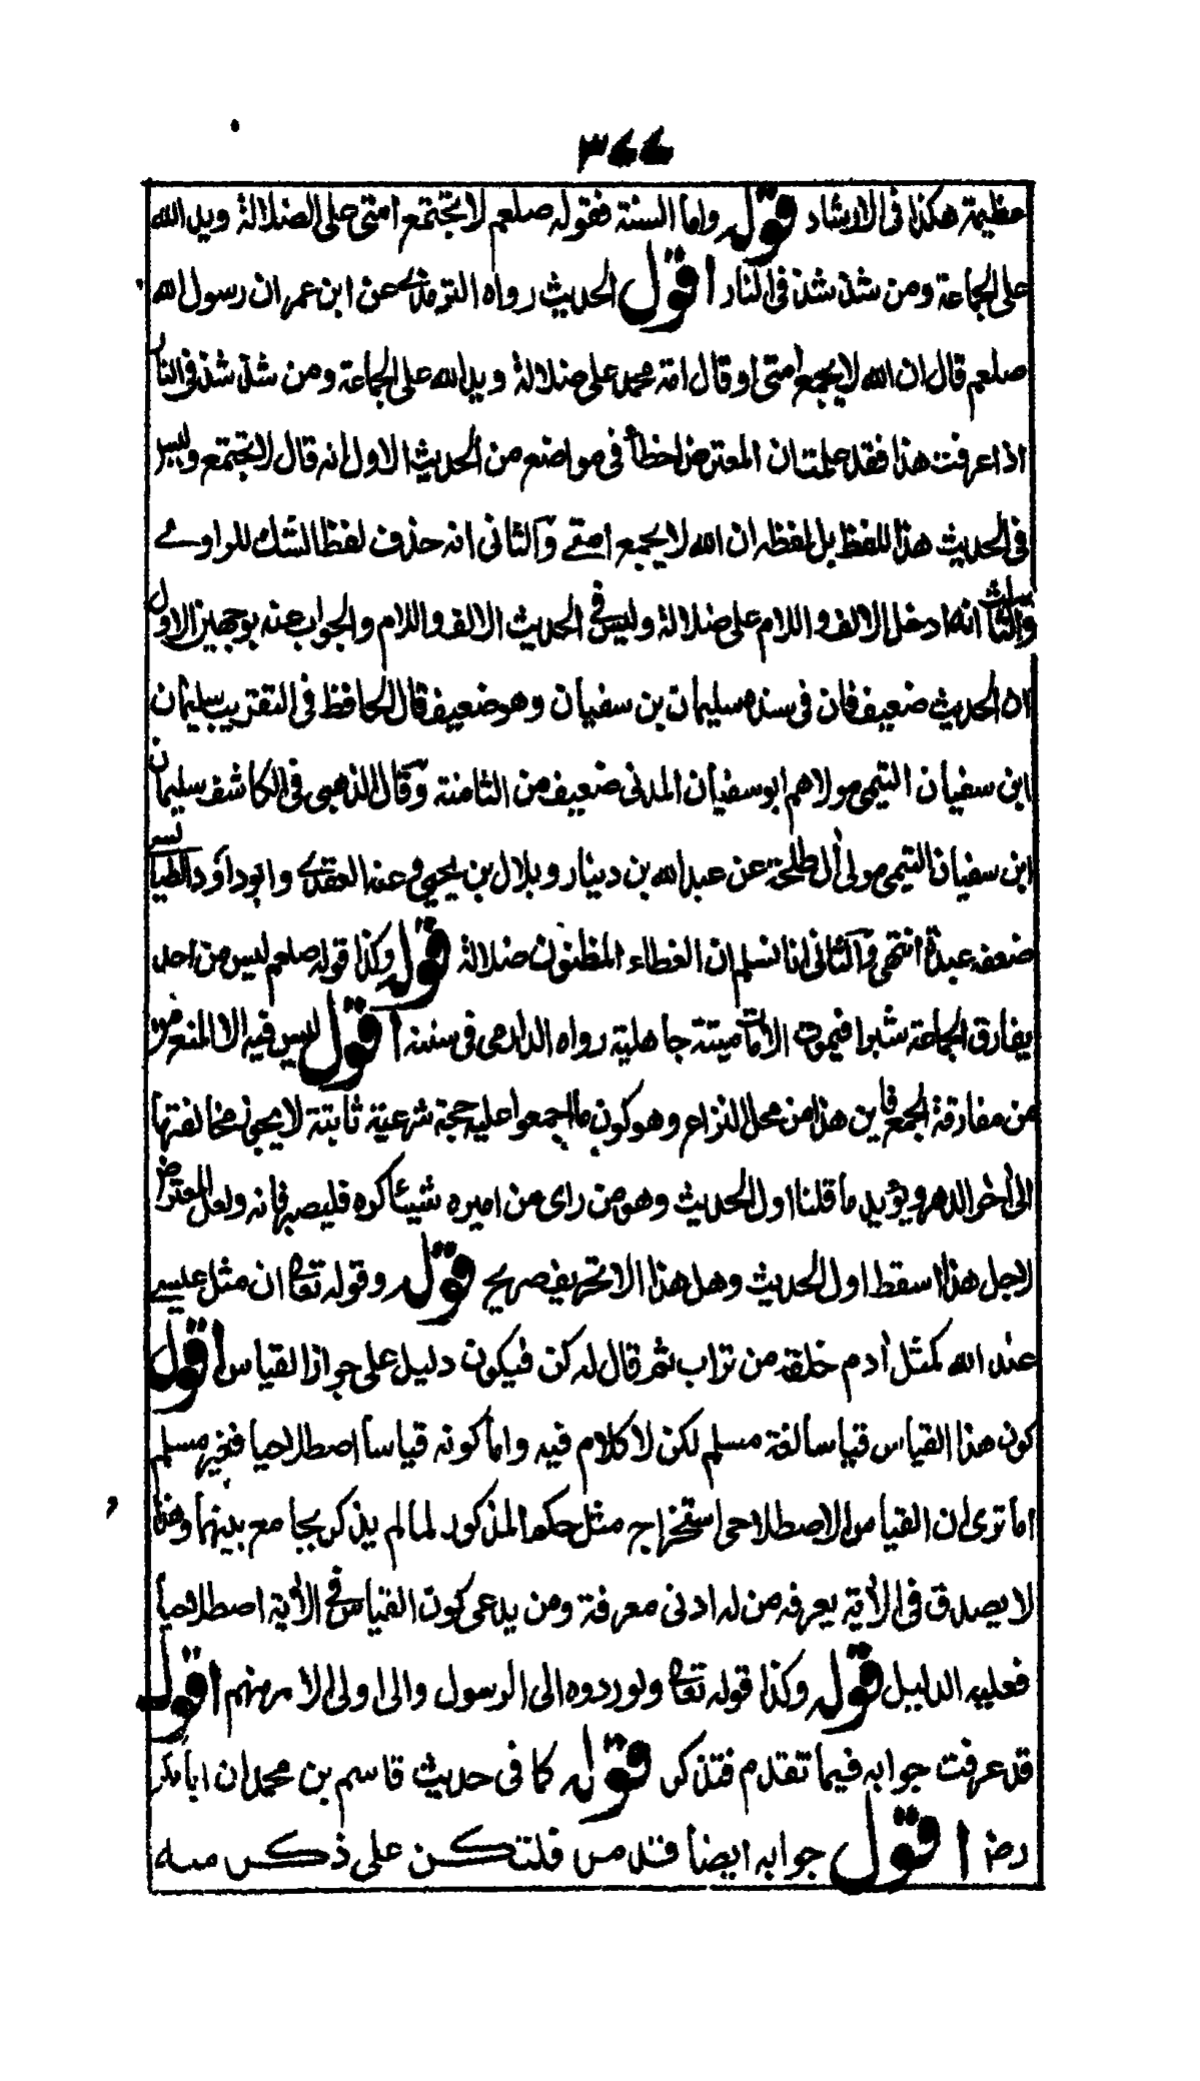 ٣٧٧
عظيمة هكذا فى الارشاد قوله واما السنة فقوله صلعم لا تجتمع امتى على الضلالة ويد الله
على الجماعة ومن شذ شذ فى النار اقول الحديث رواه الترمذى عن ابن عمر ان رسول الله
صلعم قال ان الله لا يجمع امتى او قال امة محمد على ضلالة ويد الله على الجماعة ومن شذ شذ فى النار
اذا عرفت هذا فقد علمت ان المعترض اخطأ فى مواضع من الحديث الاول انه قال لا تجتمع وليس
فى الحديث هذا اللفظ بل لفظه ان الله لا يجمع امتى والثانى انه حذف لفظ الشك للراوى
والثالث انه ادخل الالف واللام على ضلالة وليس فى الحديث الالف واللام والجواب عنه بوجهين الاول
ان الحديث ضعيف فان فى سنده سليمان بن سفيان وهو ضعيف قال الحافظ فى التقريب سليمان
ابن سفيان التيمى مولاهم ابو سفيان المدنى ضعيف من الثامنة وقال الذهبى فى الكاشف سليمان
ابن سفيان التيمى مولى أل طلحة عن عبد الله بن دينار وبلال بن يحيى وعنه العقدى وابو داؤد الطيالسى
ضعفه عبدة انتهى والثانى انا نسلم ان الخطاء المظنون ضلالة قوله وكذا قوله صلعم ليس من احد
يفارق الجماعة شبرا فيموت الامات ميتة جاهلية رواه الدارمى فى سننه اقول ليس فيه الا المنع من
من مفارقة الجمع فاين هذا من محل النزاع وهو كون ما اجمعوا عليه حجة شرعية ثابتة لا يجوز مخالفتها
الى أخر الدهر ويؤيد ما قلنا اول الحديث وهو من راى من اميره شيئا كره فليصبر فانه ولعل المعترض
لاجل هذا اسقط اول الحديث وهل هذا الا تحريف صريح قوله وقوله تعا ان مثل عيسى
عند الله كمثل أدم خلقه من تراب ثم قال له كن فيكون دليل على جواز القياس اقول
كون هذا القياس قياسا لغة مسلم لكن لا كلام فيه واما كونه قياسا اصطلاحيا فغير مسلم
اما ترى ان القياس الاصطلاحى استخراج مثل حكم المذكور لما لم يذكر بجامع بينهما وهذا
لا يصدق فى الأية يعرفه من له ادنى معرفة ومن يدعى كون القياس فى الأية اصطلاحيا
فعليه الدليل قوله وكذا قوله تعا ولو ردوه الى الرسول والى اولى الامر منهم اقول
قد عرفت جوابه فيما تقدم فتذكر قوله كما فى حديث قاسم بن محمد ان ابا بكر
رض اقول جوابه ايضا قد مر فلتكن على ذكر منه